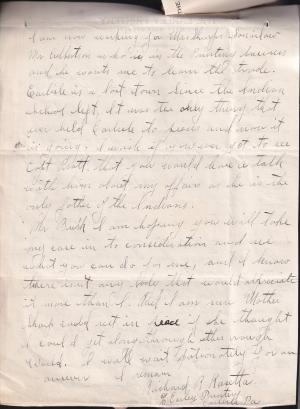 I am now working for
Mr who is in the Painting business
and he wants me to learn the trade.
Carlisle is a lost town since the Indian
School left. It was the only thing that
ever held Carlisle to pieces and now it
is going. I wish if you ever get to see
that you would have a talk
with him about my affairs as he is the
only father of the Indians.
Mr I am hoping you will take
my case in to consideration and see
what you can do for me, and I know
there isn't any body that would appreciate
it more than I. But I am sure Mother
would rest in peace if she thought
I could get along through this rough
World. I will wait for an
answer I remain
Richard R.
Carlisle Pa